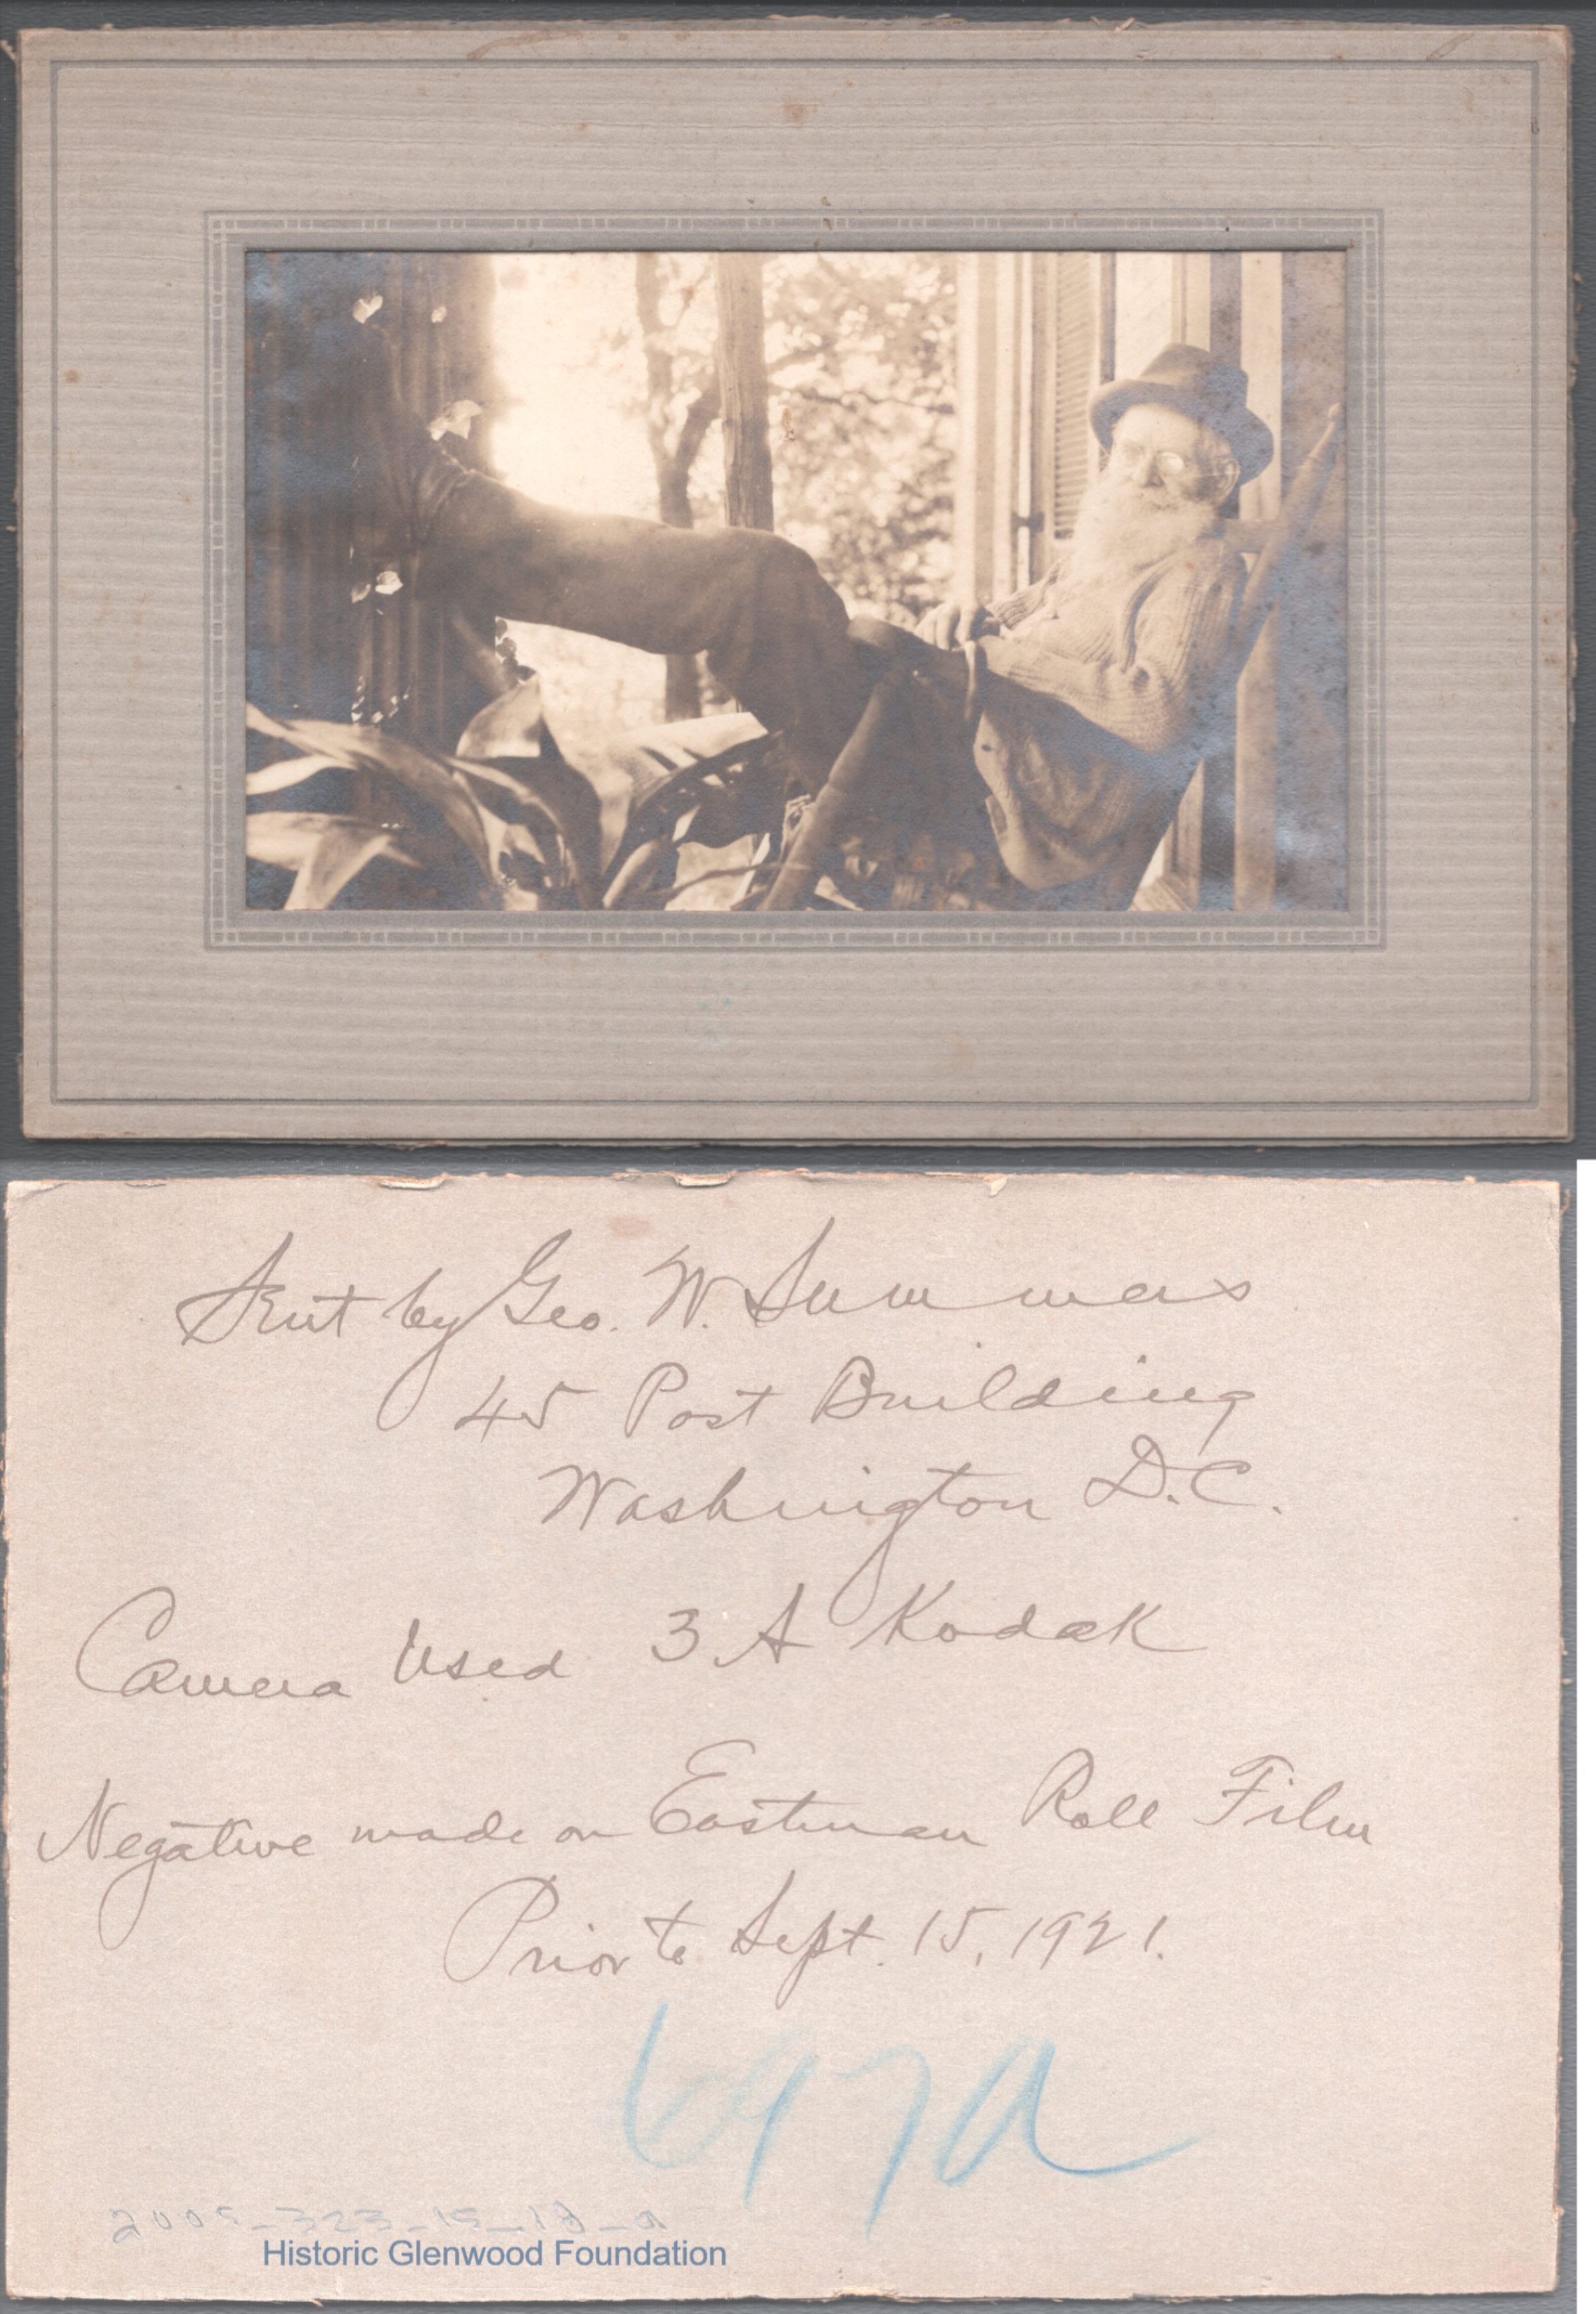 Sent by Geo. W. Summers
45 Post Building
Washington D.C.
Camera Used 3A Kodak
Negative made on Eastman Roll Film
Prior to Sept. 15, 1921.
697a
2005-323-15-18-a
Historic Glenwood Foundation